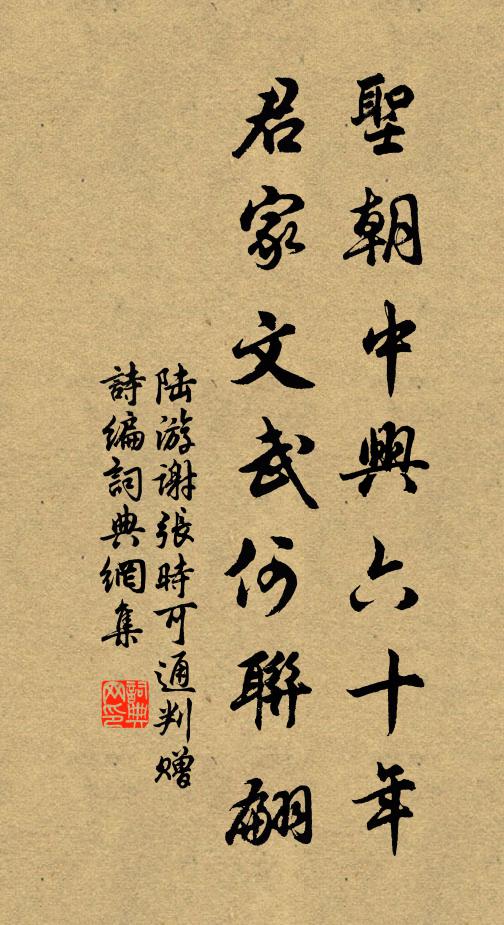 聖朝中興六十年
君家文武何聯翩
陆游谢張時可通判赠
詩编詞典網集
詞典网印